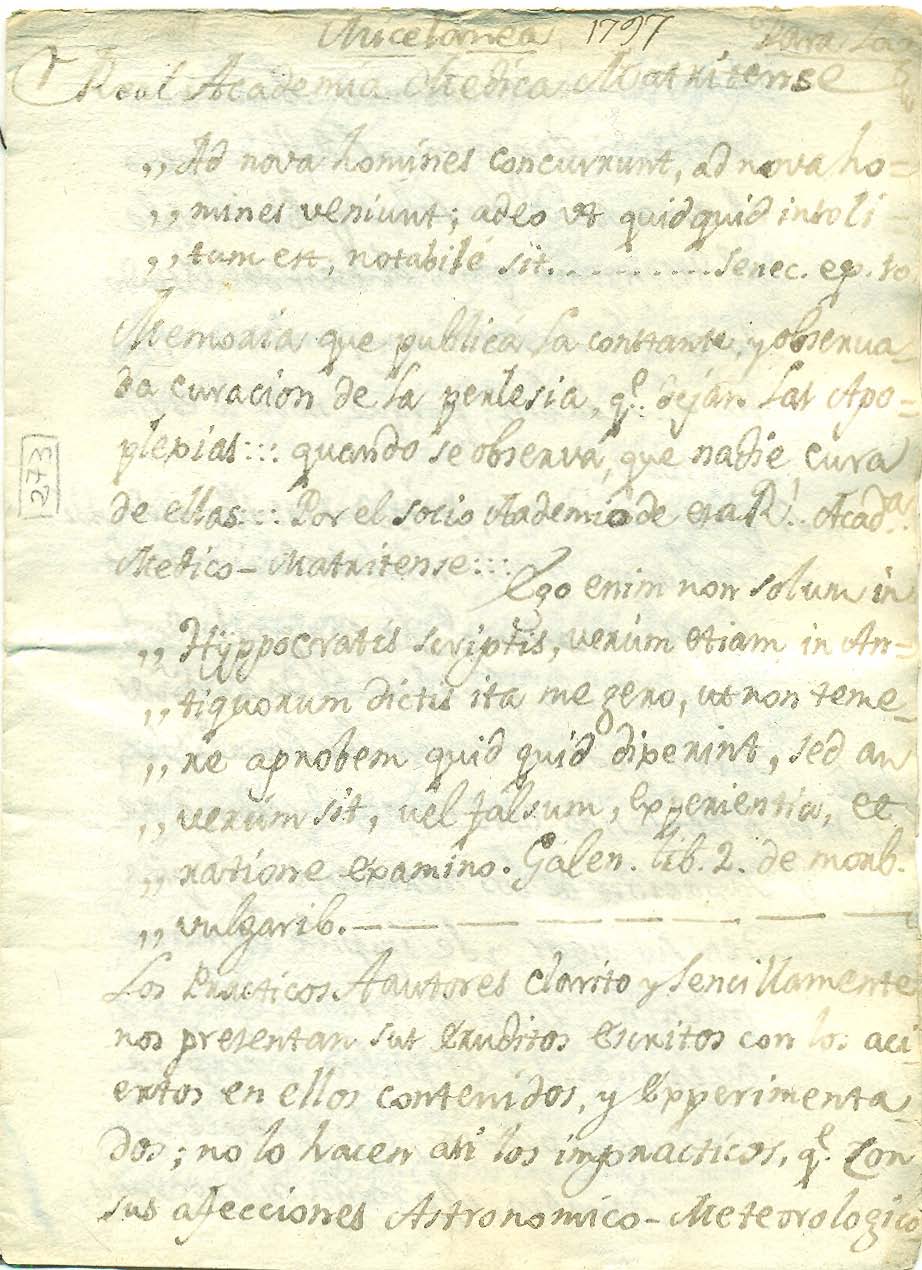 Micelanea 1797 Para la
Real Academia Medica Matritense
,, Ad nova homines concurrunt, ad nova ho=
,, mines veniunt; adeo ut quidquid insoli
,, tum est, notabilé sit..........Senec. ep. to
Memoria que publicá la conttante, y observa
da curacion de la perlesia, q.e dejan las Apo=
plexias::: quando se observá, que nadie cura
de ellas::: Por el socio Academico de esa R.l Acad.a
Medico-Matritense:::
Ego enim non solum in
,, Hyppocratis scriptis, verúm etiam in An=
,, tiquorum dictis ita me gero, ut non teme_
,, re aprobem quid quid dixerint, sed an
,, verúm sit, vel falsum, experientia, et
,, ratione examino. Galen. lib. 2. de morb.
,, vulgarib.
Los Practicos Aautores clarito y sencillamente
nos presentan sus Eruditos Escritos con los aci
ertos en ellos contenidos, y Expperimenta
dos; no lo hacen asi los impracticos, q.e con
sus afecciones Astronomico-Meteorologico
273